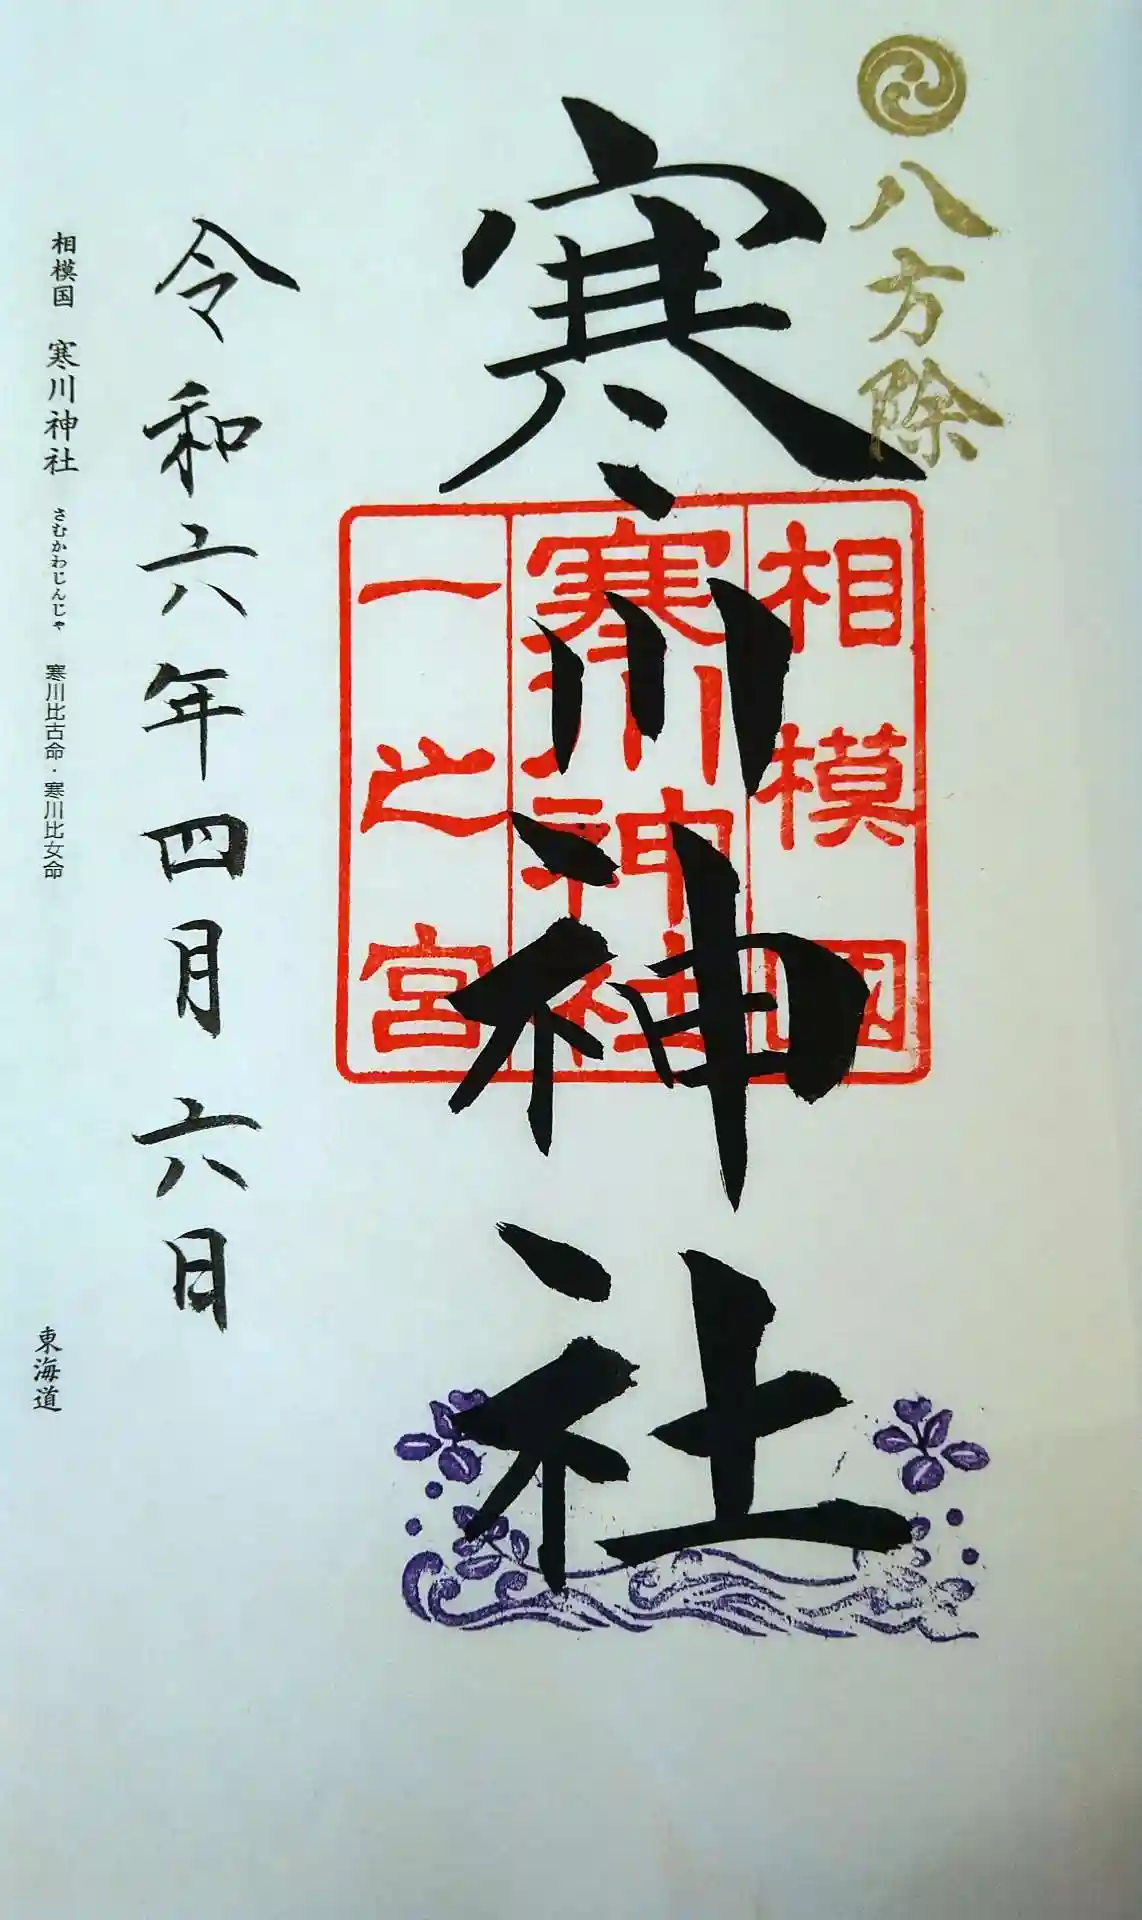 八方除
寒川神社
相模國
寒川神社
一之宮
令和六年四月六日
相模国 寒川神社 さむかわじんじゃ 寒川比古命・寒川比女命
東海道